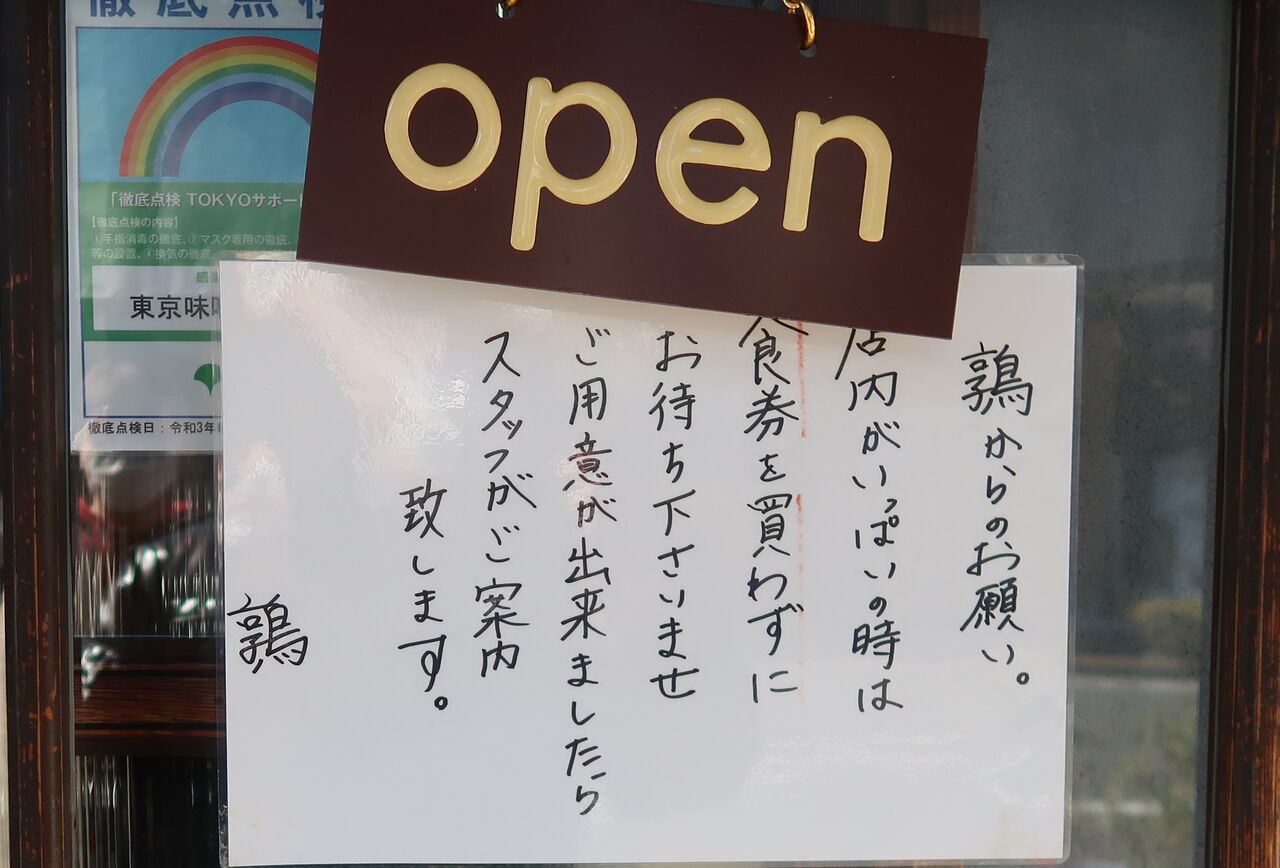 徹底点検
open
「徹底点検 TOKYOサポー
【徹底点検の内容】
①手指消毒の徹底、②マスク着用の徹底、
等の設置、④換気の徹底
東京味
徹底点検日：令和3年
鶉からのお願い。
店内がいっぱいの時は
食券を買わずに
お待ち下さいませ
ご用意が出来ましたら
スタッフがご案内
致します。
鶉